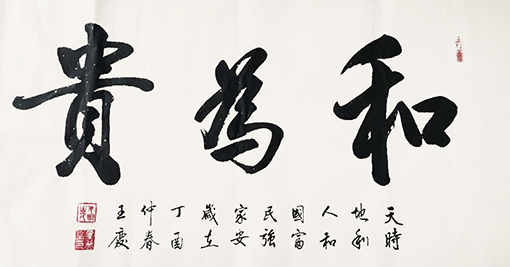 和為貴
天時
地利
人和
國富
民強
家安
歲在
丁酉
仲春
王慶